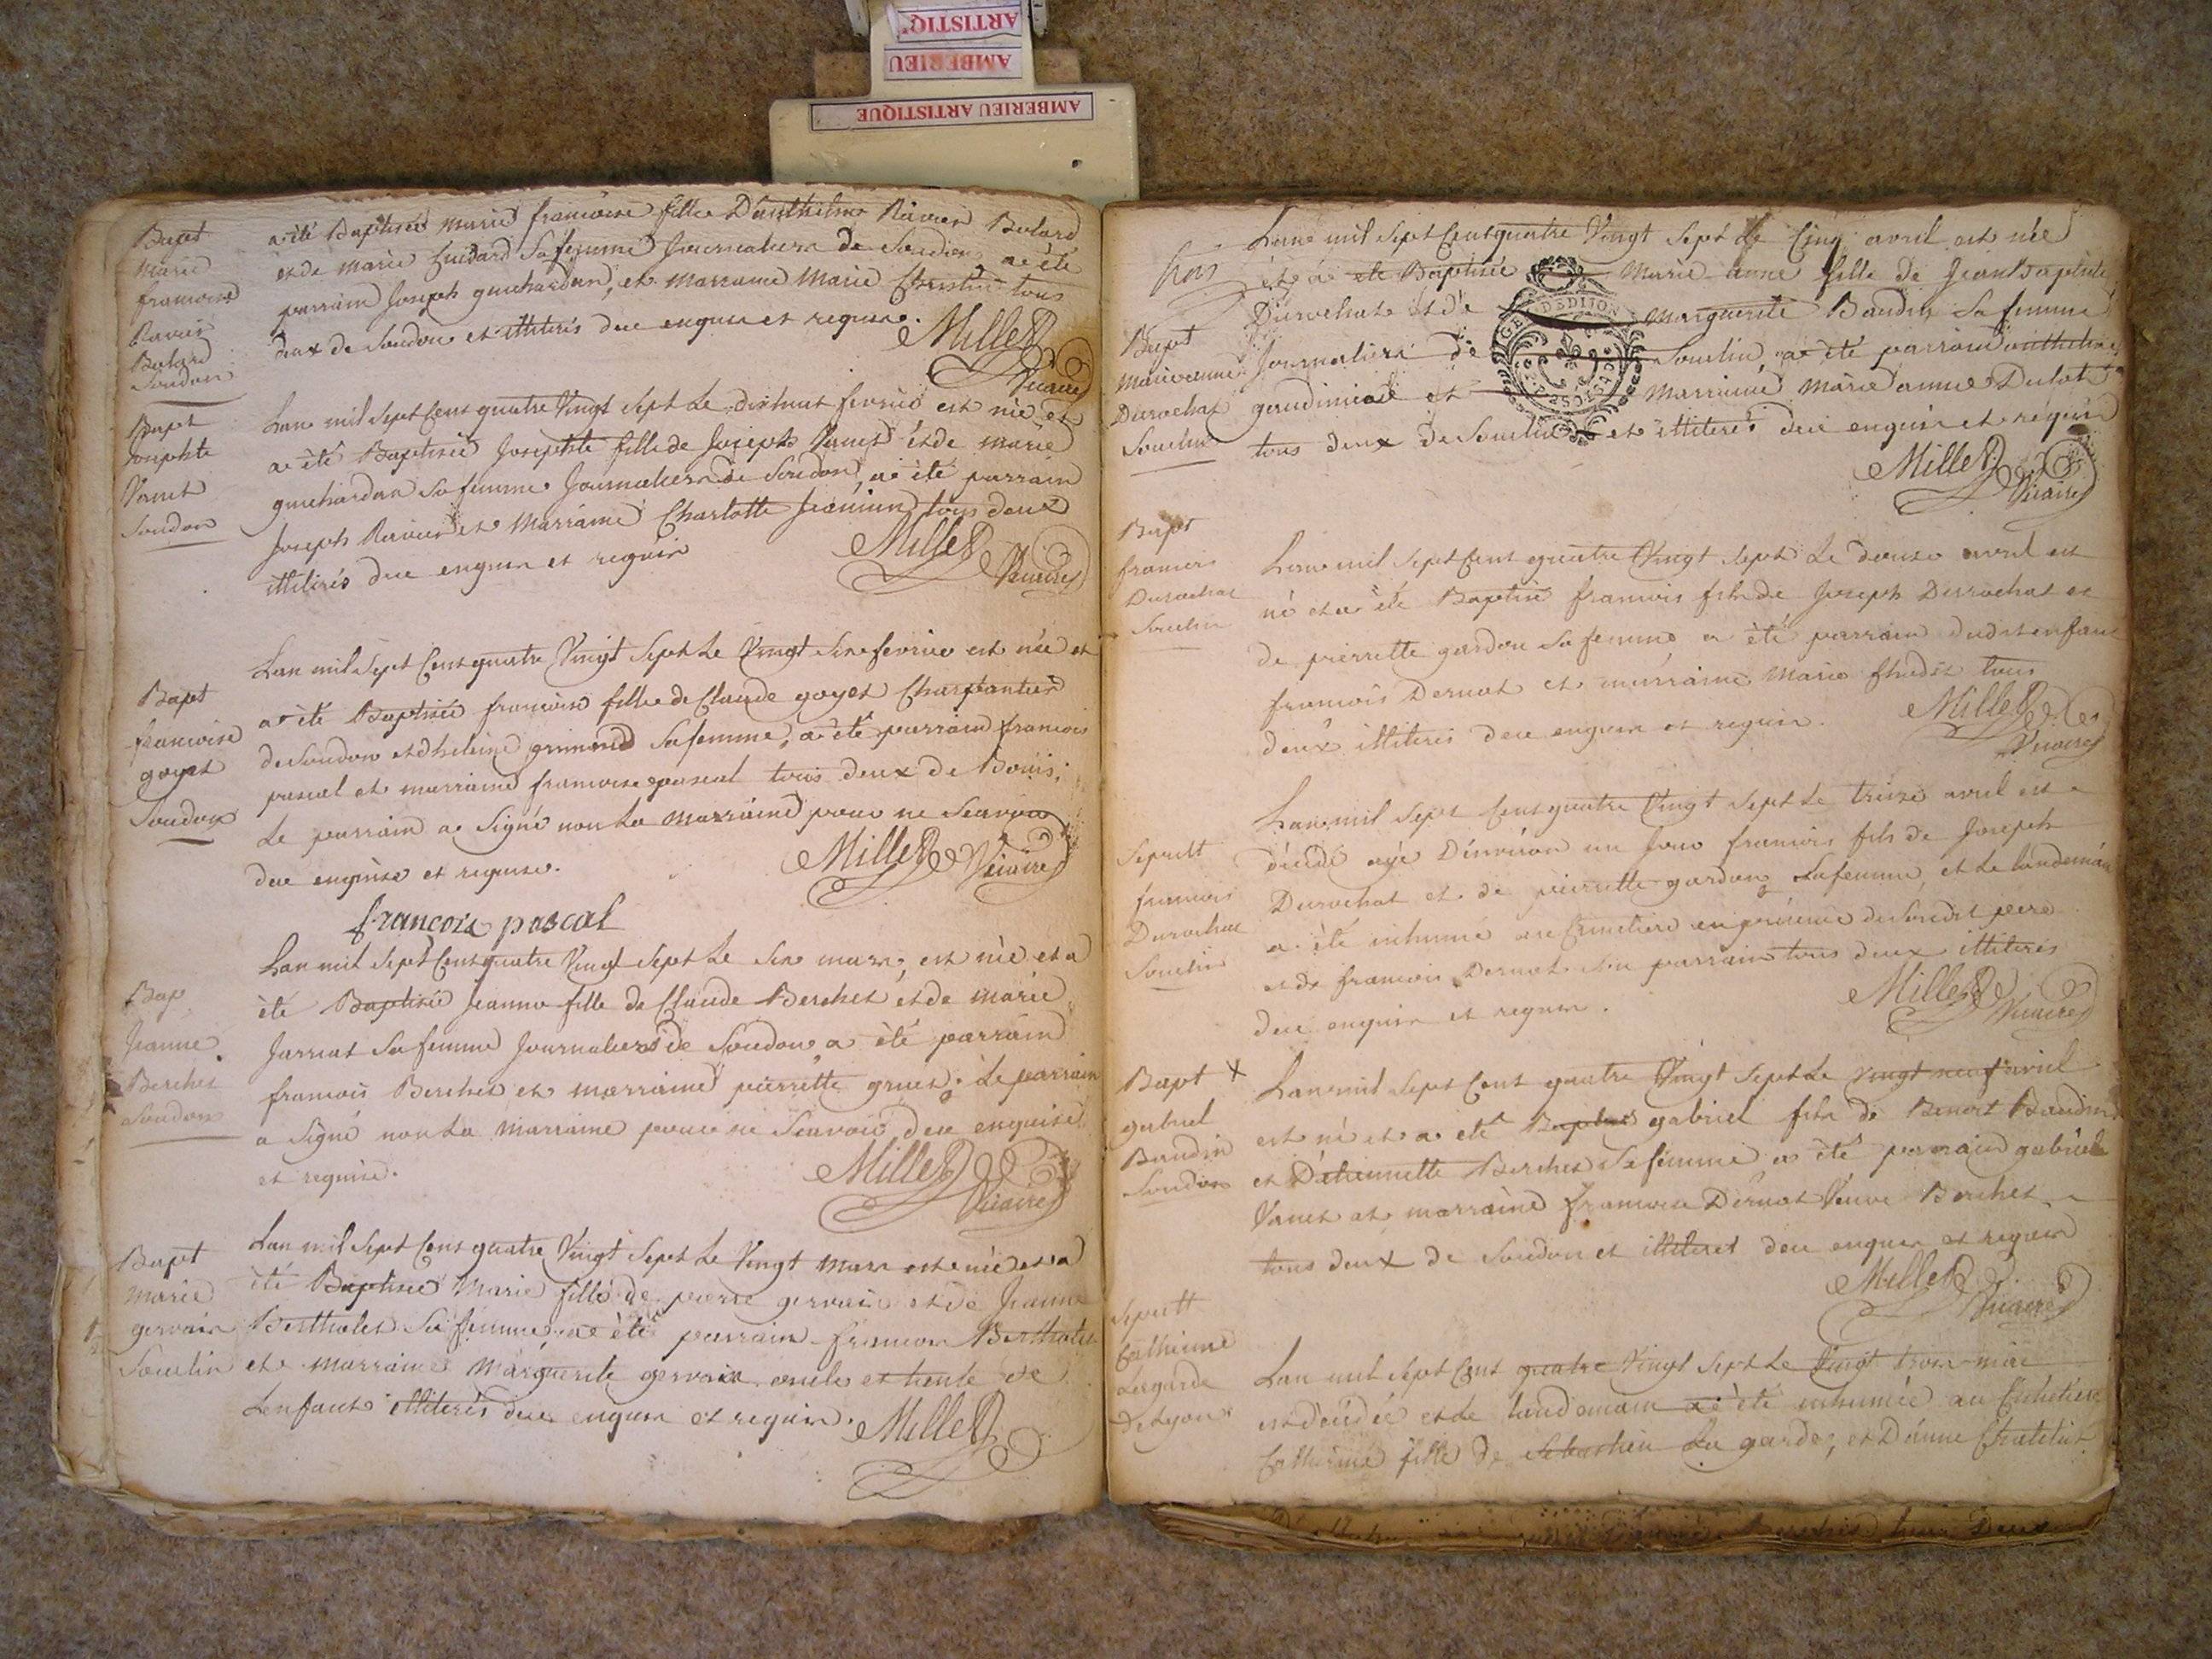 ARTISTIQ
AMBERIEU
AMBERIEU ARTISTIQUE
Bapt
Marie
francoise
Ravier
Bolard
Soudon
a été Baptisée Marie francoise fille D'anthelme Ravier Bolard
et de Marie Guidard Sa femme Journaliers de Soudon, a été
parrain Joseph guichardan, et Marraine Marie Christin tous
deux de Soudon et illiterés deu enquis et requis.
Millet
Vicaire
Bapt
Josephte
Vanet
Soudon
Lan mil Sept Cent quatre Vingt Sept Le dixhuit fevrié est née et
a été Baptisée Josephte fille de Joseph Vanet et de Marie
guichardan Sa femme Journaliers de Soudon, a été parrain
Joseph Ravier et Marraine Charlotte Jeannin tous deux
illiterés deu enquis et requis
Millet
Vicaire
Bapt
francoise
goyet
Soudon
Lan mil Sept Cent quatre Vingt Sept Le Vingt Six fevrier est née et
a été Baptisée francoise fille de Claude goyet Charpantier
de Soudon et dheleine grimond Sa femme, a été parrain francois
pascal et marraine francoise pascal tous deux de
Le parrain a Signé non La Marraine pour ne Scavoir
deu enquise et requise.
Millet Vicaire
francois pascal
Bap
Jeanne
Berchet
Soudon
Lan mil Sept Cent quatre Vingt Sept Le Six mars, est née et a
été Baptisée Jeanne fille de Claude Berchet et de Marie
Jarriat Sa femme Journaliers de Soudon a été parrain
francois Berchet et marraine pierrette gruet. Le parrain
a Signé non La Marraine pour ne Scavoir deu enquise
et requise.
Millet
Vicaire
Bapt
Marie
gervais
Souclin
Lan mil Sept Cent quatre Vingt Sept Le Vingt Mars est née et a
été Baptisée Marie fille de pierre gervais et de Jeanne
Bertholet Sa femme a été parrain francois Bertholet
et Marraine Marguerite gervais oncle et tente de
Lenfant illiterés deu enquis et requis.
Millet
trois
Bapt
Marieanne
Durochat
Souclin
Lan mil Sept Cent quatre Vingt Sept Le Cinq avril est née
et a été Baptisée Marie anne fille de Jean Baptiste
Durochat et de Marguerite Baudin Sa femme
Journaliers de Souclin, a été parrain anthelme
et Marraine Marie anne
tous deux de Souclin et illiterés deu enquis et requis
GEN D'EDIJON
Millet
Vicaire
Bapt
francois
Durochat
Souclin
Lan mil Sept Cent quatre Vingt Sept Le douze avril est
né et a été Baptisé francois fils de Joseph Durochat et
de pierrette gardon Sa femme a été parrain dudit enfant
francois Dernat et marraine Marie tous
deux illiterés deu enquis et requis.
Millet
Vicaire
Sepult
francois
Durochat
Souclin
Lan mil Sept Cent quatre Vingt Sept Le treize avril est
décédé agé D'environ un Jour francois fils de Joseph
Durochat et de pierrette gardon Sa femme, et Le landemain
a été inhumé au Cimetiere en présence de Sondit pere
et de francois Dernat Son parrain tous deux illiterés
deu enquis et requis.
Millet
Vicaire
Bapt X
gabriel
Baudin
Soudon
Lan mil Sept Cent quatre Vingt Sept Le Vingt neuf avril
est né et a été Baptisé gabriel fils de Benoit Baudin
et D'etiennette Berchet Sa femme a été parrain gabriel
Vanet et marraine francoise Dernat Veuve Berchet
tous deux de Soudon et illiteret deu enquis et requis
Millet
Vicaire
Sepultt
Catherine
Lagarde
De Lyon
Lan mil Sept Cent quatre Vingt Sept Le Vingt trois mai
est décédée et Le landemain a été inhumée au Cimetiere
Catherine fille de Sebastien La garde, et D'anne Chatelut